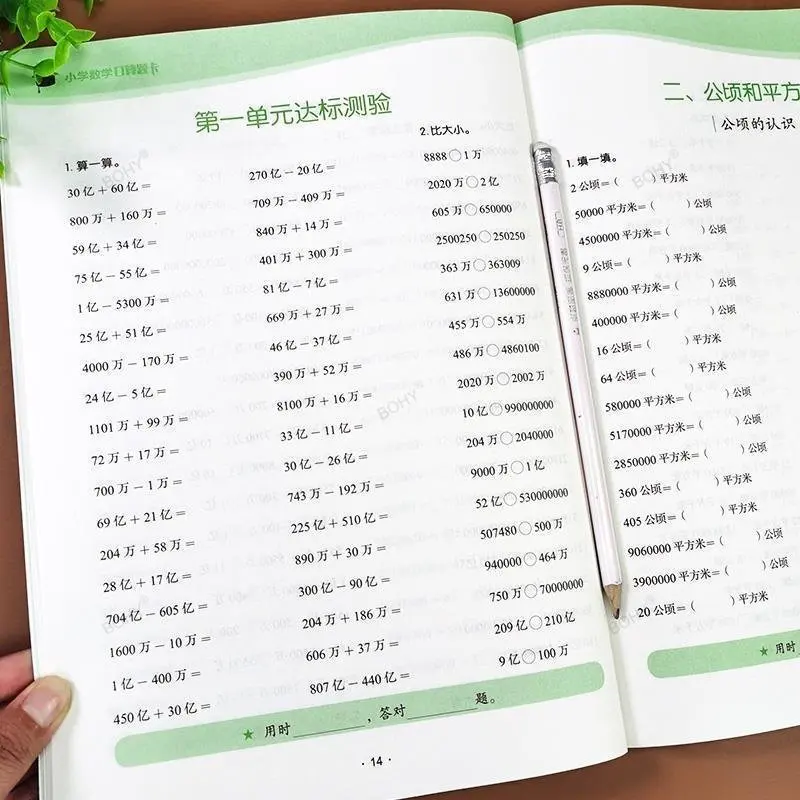 小学数学口算题卡
第一单元达标测验
1. 算一算。
30 亿 + 60 亿 =
800 万 + 160 万 =
59 亿 + 34 亿 =
75 亿 - 55 亿 =
1 亿 - 5300 万 =
25 亿 + 51 亿 =
4000 万 - 170 万 =
24 亿 - 5 亿 =
1101 万 + 99 万 =
72 万 + 17 万 =
700 万 - 1 万 =
69 亿 + 21 亿 =
204 万 + 58 万 =
28 亿 + 17 亿 =
704 亿 - 605 亿 =
1600 万 - 10 万 =
1 亿 - 400 万 =
450 亿 + 30 亿 =
270 亿 - 20 亿 =
709 万 - 409 万 =
840 万 + 14 万 =
401 万 + 300 万 =
81 亿 - 7 亿 =
669 万 + 27 万 =
46 亿 - 37 亿 =
390 万 + 52 万 =
8100 万 + 16 万 =
33 亿 - 11 亿 =
30 亿 - 26 亿 =
743 万 - 192 万 =
225 亿 + 510 亿 =
890 万 + 30 万 =
300 亿 - 90 亿 =
204 万 + 186 万 =
606 万 + 37 万 =
807 亿 - 440 亿 =
2. 比大小。
8888 ○ 1 万
2020 万 ○ 2 亿
605 万 ○ 650000
2500250 ○ 250250
363 万 ○ 363009
631 万 ○ 13600000
455 万 ○ 554 万
486 万 ○ 4860100
2020 万 ○ 2002 万
10 亿 ○ 990000000
204 万 ○ 2040000
9000 万 ○ 1 亿
52 亿 ○ 530000000
507480 ○ 500 万
940000 ○ 464 万
750 万 ○ 70000000
209 亿 ○ 210 亿
9 亿 ○ 100 万
★ 用时________,答对________题。
· 14 ·
二、公顷和平方
公顷的认识
1. 填一填。
2 公顷=( )平方米
50000 平方米=( )公顷
4500000 平方米=( )公顷
9 公顷=( )平方米
8880000 平方米=( )公顷
400000 平方米=( )公顷
16 公顷=( )平方米
64 公顷=( )平方米
580000 平方米=( )公顷
5170000 平方米=( )公顷
2850000 平方米=( )公顷
360 公顷=( )平方米
405 公顷=( )平方米
9060000 平方米=( )公顷
3900000 平方米=( )公顷
20 公顷=( )平方米
★ 用时
BOHY
BOHY
BOHY
BOHY
BOHY